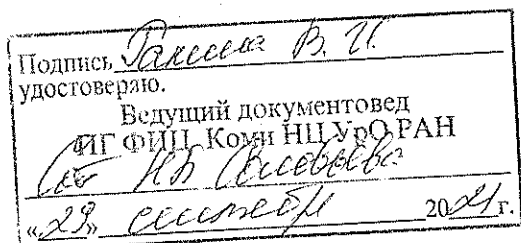 Подпись Ракина В. И.
удостоверяю.
Ведущий документовед
ИГ ФИЦ Коми НЦ УрО РАН
«29» сентября 2021 г.